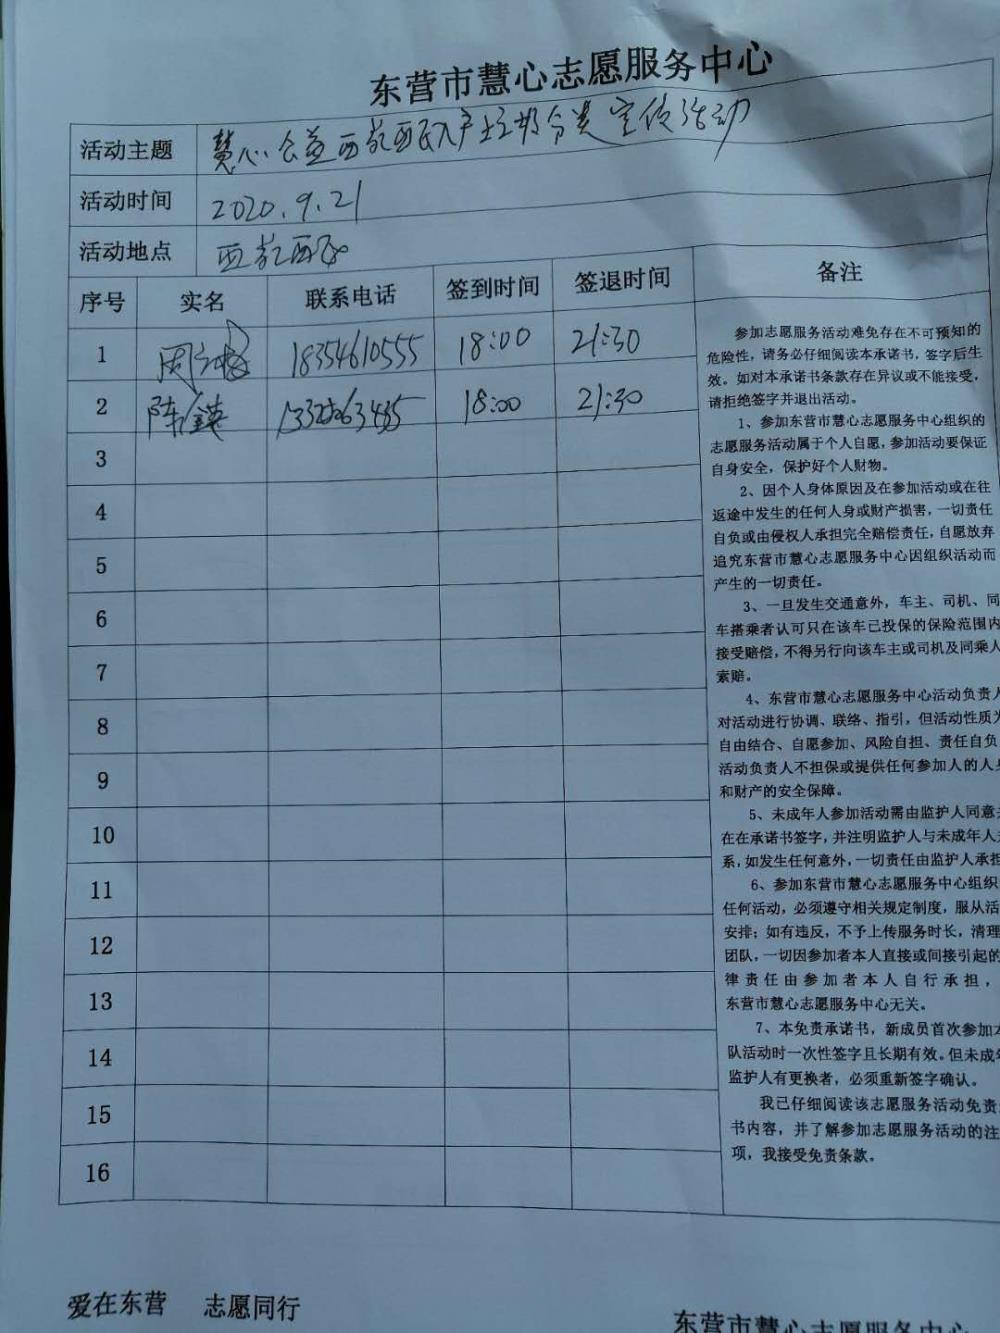 东营市慧心志愿服务中心
活动主题 慧心公益西苑西区入户垃圾分类宣传活动
活动时间 2020.9.21
活动地点 西苑西区
序号 实名 联系电话 签到时间 签退时间 备注
1 周 18354610555 18:00 21:30
2 陈 18:00 21:30
3
4
5
6
7
8
9
10
11
12
13
14
15
16
参加志愿服务活动难免存在不可预知的
危险性，请务必仔细阅读本承诺书，签字后生
效。如对本承诺书条款存在异议或不能接受，
请拒绝签字并退出活动。
1、参加东营市慧心志愿服务中心组织的
志愿服务活动属于个人自愿，参加活动要保证
自身安全，保护好个人财物。
2、因个人身体原因及在参加活动或在往
返途中发生的任何人身或财产损害，一切责任
自负或由侵权人承担完全赔偿责任，自愿放弃
追究东营市慧心志愿服务中心因组织活动而
产生的一切责任。
3、一旦发生交通意外，车主、司机、同
车搭乘者认可只在该车已投保的保险范围内
接受赔偿，不得另行向该车主或司机及同乘人
索赔。
4、东营市慧心志愿服务中心活动负责人
对活动进行协调、联络、指引，但活动性质为
自由结合、自愿参加、风险自担、责任自负
活动负责人不担保或提供任何参加人的人身
和财产的安全保障。
5、未成年人参加活动需由监护人同意并
在在承诺书签字，并注明监护人与未成年人关
系，如发生任何意外，一切责任由监护人承担
6、参加东营市慧心志愿服务中心组织
任何活动，必须遵守相关规定制度，服从活
安排；如有违反，不予上传服务时长，清理
团队，一切因参加者本人直接或间接引起的
律责任由参加者本人自行承担，
东营市慧心志愿服务中心无关。
7、本免责承诺书，新成员首次参加本
队活动时一次性签字且长期有效。但未成年
监护人有更换者，必须重新签字确认。
我已仔细阅读该志愿服务活动免责
书内容，并了解参加志愿服务活动的注
项，我接受免责条款。
爱在东营 志愿同行
东营市慧心志愿服务中心